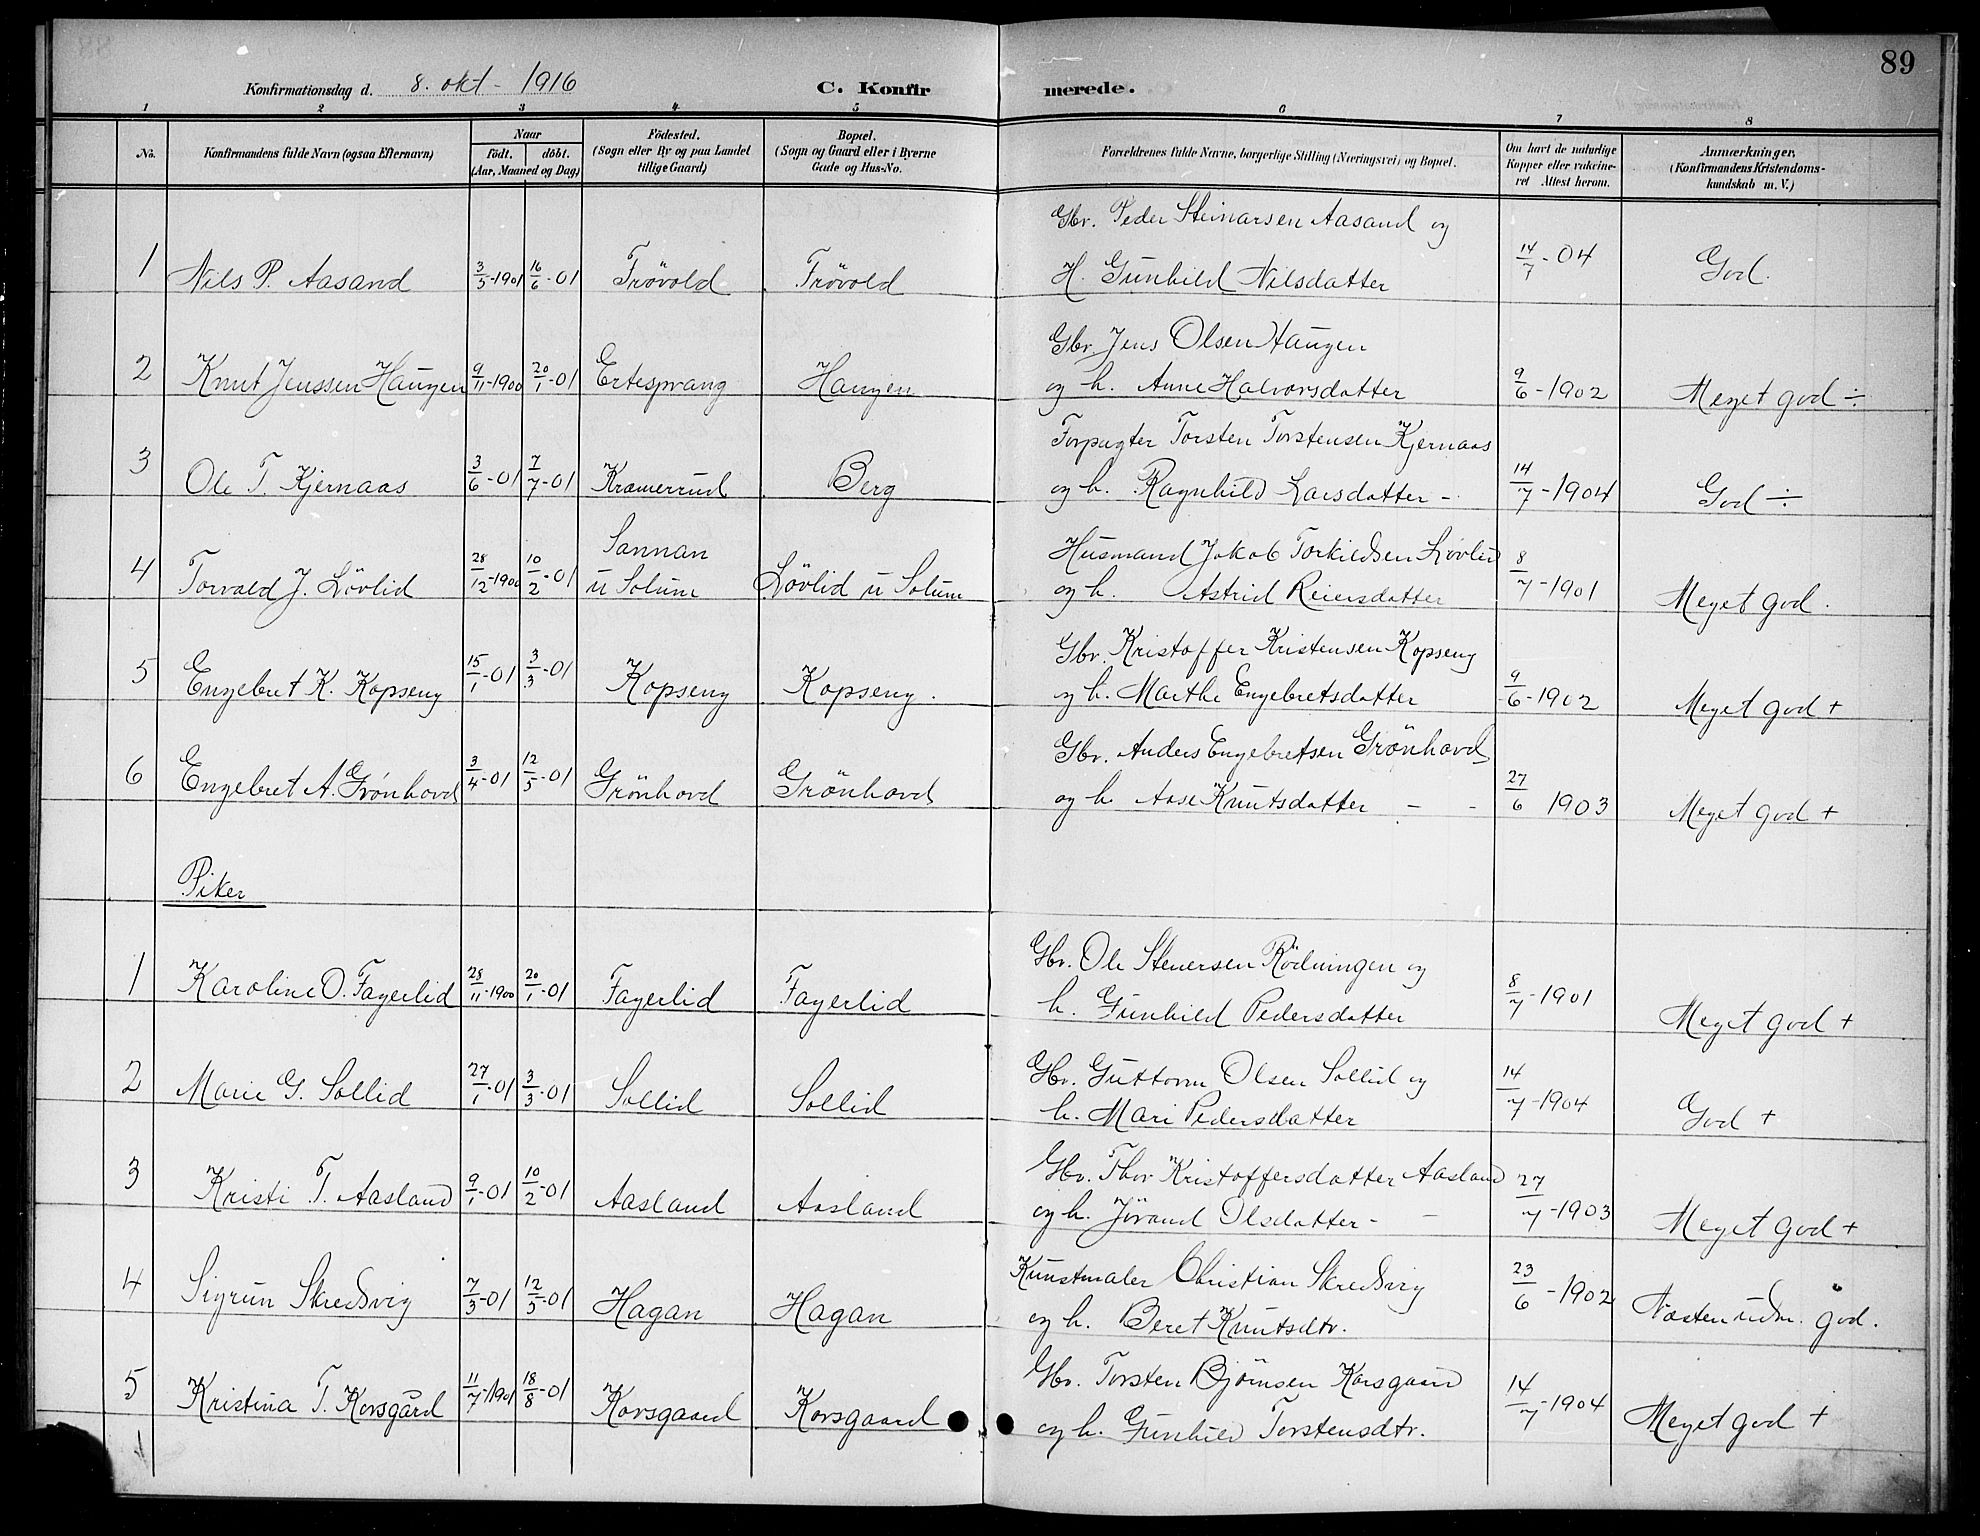 89
Konfirmationsdag d. 8. okt - 1916 C. Konfirmerede.
1 2 3 4 5 6 7 8
No.
Konfirmandens fulde Navn (ogsaa Efternavn)
Naar
födt. döbt.
(Aar, Maaned og Dag)
Födested.
(Sogn eller By og paa Landet
tillige Gaard)
Bopæl.
(Sogn og Gaard eller i Byerne
Gade og Hus-No.
Forældrenes fulde Navne, borgerlige Stilling (Næringsvei) og Bopæl.
Om havt de naturlige
Kopper eller vakcine-
ret Attest herom.
Anmærkninger.
(Konfirmandens Kristendoms-
kundskab m. V.)
Gbr. Peder Steinarsen Aasand og
1 Nils P. Aasand 3/5-1901 16/6-01 Trövold Trövold H. Gunhild Nilsdatter 14/7-04 God.
Gbr. Jens Olsen Haugen
2 Knut Jenssen Haugen 9/11-1900 20/1-01 Ertesprang Haugen og h. Anne Halvorsdatter 9/6-1902 Meget god ÷
Forpagter Torsten Torstensen Kjernaas
3 Ole T. Kjernaas 3/6-01 7/7-01 Kramerrud Berg og h. Ragnhild Larsdatter - 14/7-1904 God ÷
Sannan Husmand Jakob Torkildsen Lövlid
4 Torvald J. Lövlid 28/12-1900 10/2-01 u Solum Lövlid u Solum og h. Astrid Reiersdatter 8/7-1901 Meget god.
Gbr. Kristoffer Kristensen Kopseng
5 Engebret K. Kopseng 15/1-01 3/3-01 Kopseng Kopseng. og h. Marthe Engebretsdatter 9/6-1902 Meget god +
Gbr. Anders Engebretsen Grönhovd
6 Engebret A. Grönhovd 3/4-01 12/5-01 Grönhovd Grönhovd og h. Aase Knutsdatter - - 27/6 1903 Meget god +
Piker
Gbr. Ole Stenersen Rödningen og
1 Karoline O. Fagerlid 28/11-1900 20/1-01 Fagerlid Fagerlid h. Gunhild Pedersdatter 8/7-1901 Meget god +
Gbr. Guttorm Olsen Sollid og
2 Marie G. Sollid 27/1-01 3/3-01 Sollid Sollid h. Mari Pedersdatter 14/7-1904 God +
Gbr. Thor Kristoffersdatter Aasland
3 Kristi T. Aasland 9/1-01 10/2-01 Aasland Aasland og h. Jörand Olsdatter - - 27/7-1903 Meget god +
Kunstmaler Christian Skredsvig
4 Sigrun Skredsvig 7/3-01 12/5-01 Hagan Hagan og h. Beret Knutsdtr. 23/6-1902 Næsten udm. god.
Gbr. Torsten Björnsen Korsgaard
5 Kristina T. Korsgård 11/7-1901 18/8-01 Korsgaard Korsgaard og h. Gunhild Torstensdtr. 14/7-1904 Meget god +